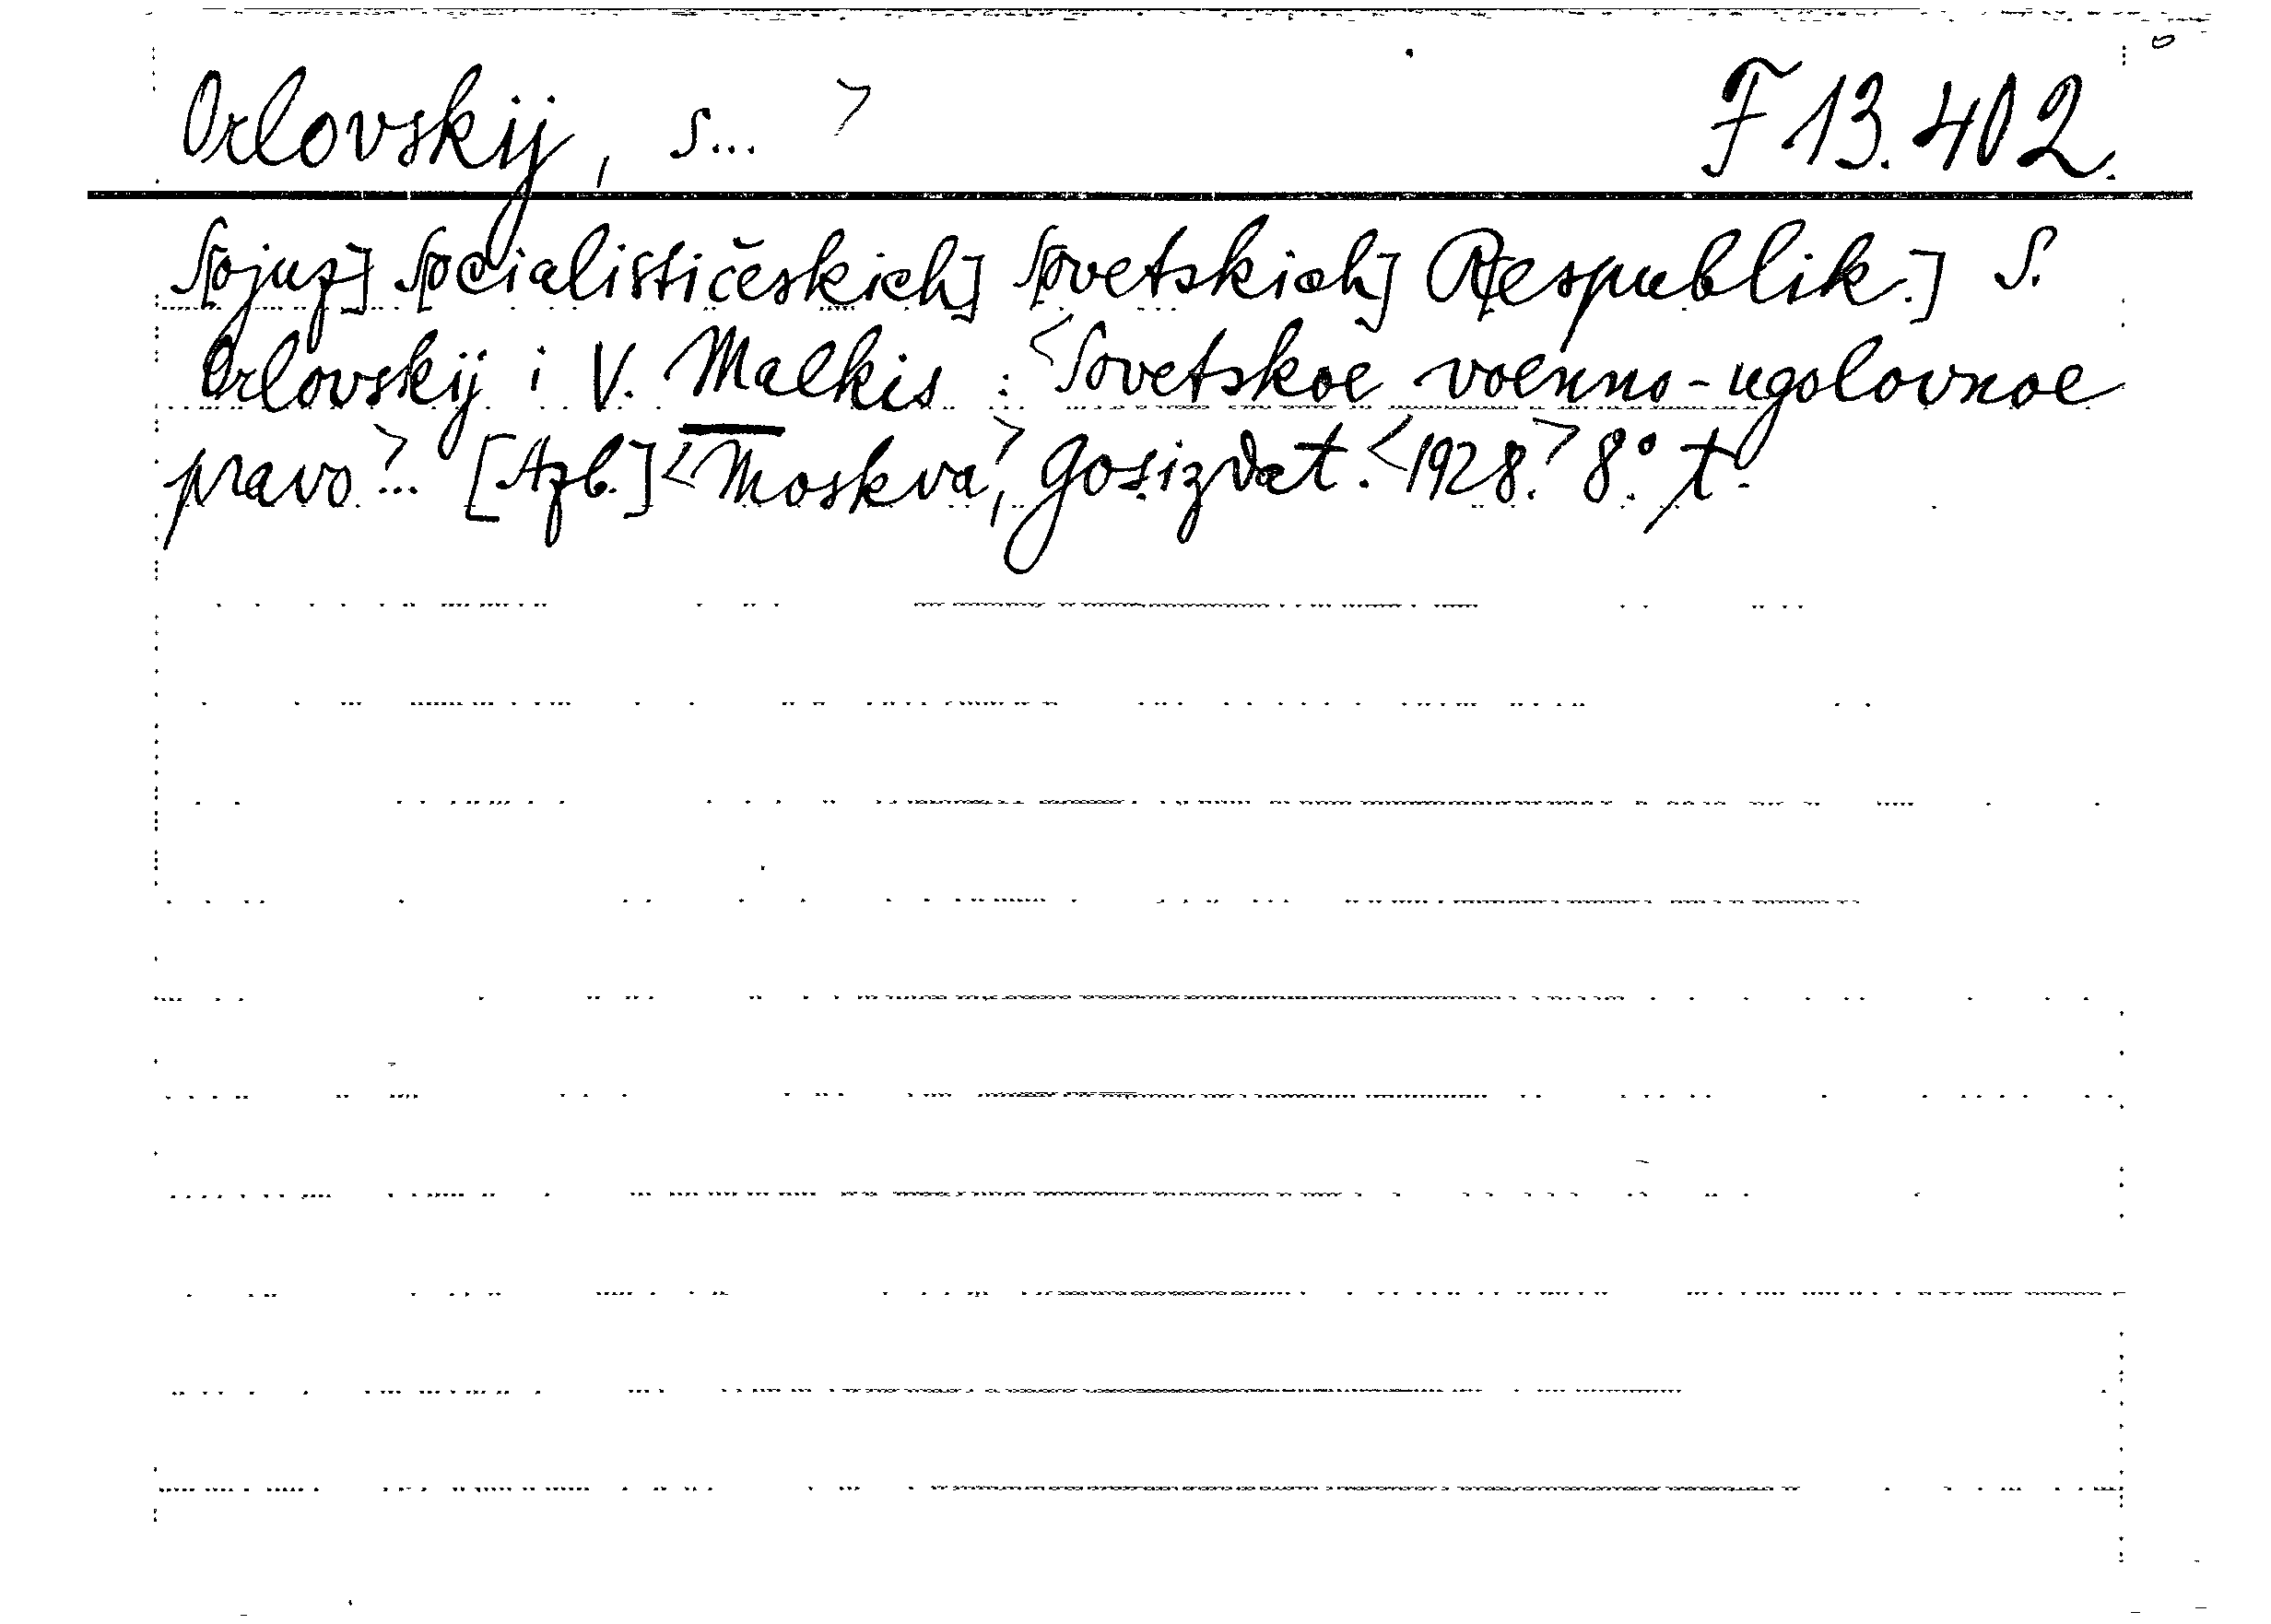 Orlovskij, S... > F 13.402.
S[ojuz] S[ocialističeskich] S[ovetskich] R[espublik.] S.
Orlovskij i V. Malkis : <Sovetskoe voenno-ugolovnoe
pravo>... [Azb.] <Moskva>, Gosizdat. <1928.> 8°. t.